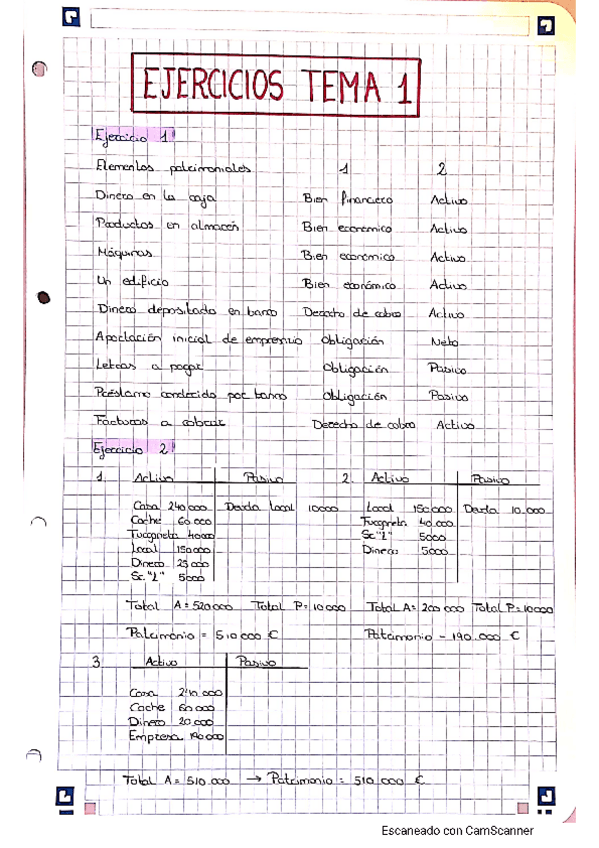 EJERCICIOS TEMA 1
Ejercicio 1
Elementos patrimoniales 1 2
Dinero en la caja Bien financiero Activo
Productos en almacén Bien economico Activo
Máquinas Bien económico Activo
Un edificio Bien económico Activo
Dinero depositado en banco Derecho de cobro Activo
Aportación inicial de empresario Obligación Neto
Letras a pagar Obligación Pasivo
Préstamo concedido por banco Obligación Pasivo
Facturas a cobrar Derecho de cobro Activo
Ejercicio 2
1. Activo Pasivo 2. Activo Pasivo
Casa 240.000 Deuda local 10000 Local 150000 Deuda 10.000
Coche 60.000 Furgoneta 40.000
Furgoneta 40000 Sc."L" 5000
Local 150000 Dinero 5000
Dinero 25000
Sc. "L" 5000
Total A = 520000 Total P = 10000 Total A = 200 000 Total P = 10000
Patrimonio = 510 000 € Patrimonio - 190.000 €
3. Activo Pasivo
Casa 240.000
Coche 60.000
Dinero 20.000
Empresa 190000
Total A = 510.000 → Patrimonio = 510 000 €
Escaneado con CamScanner